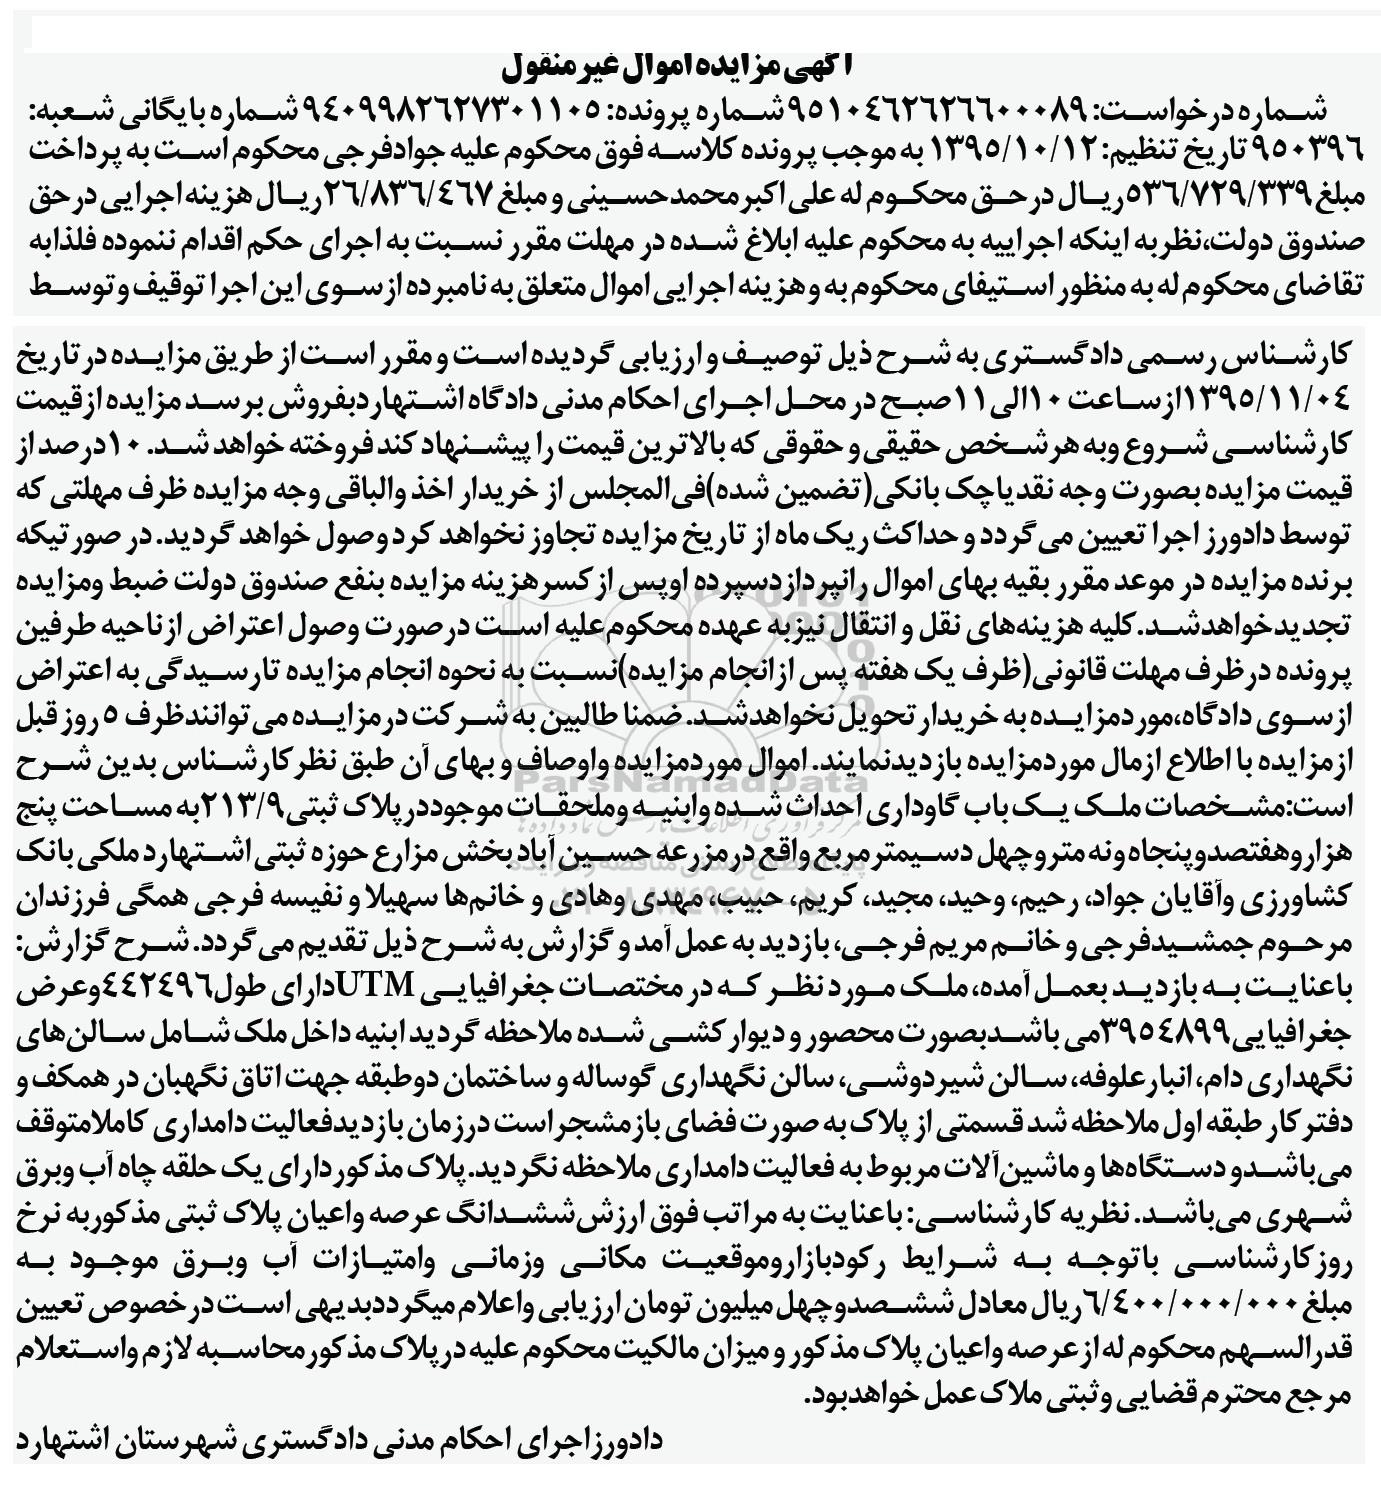 آگهی مزایده اموال غیر منقول
شماره درخواست: ۹۵۱۰۴۶۲۶۲۶۶۰۰۰۸۹ شماره پرونده: ۹۴۰۹۹۸۲۶۲۷۳۰۱۱۰۵ شماره بایگانی شعبه:
۹۵۰۳۹۶ تاریخ تنظیم: ۱۳۹۵/۱۰/۱۲ به موجب پرونده کلاسه فوق محکوم علیه جوادفرجی محکوم است به پرداخت
مبلغ ۵۳۶/۷۲۹/۳۳۹ریال در حق محکوم له علی اکبر محمدحسینی و مبلغ ۲۶/۸۳۶/۴۶۷ریال هزینه اجرایی در حق
صندوق دولت،نظربه اینکه اجراییه به محکوم علیه ابلاغ شده در مهلت مقرر نسبت به اجرای حکم اقدام ننموده فلذابه
تقاضای محکوم له به منظور استیفای محکوم به و هزینه اجرایی اموال متعلق به نامبرده از سوی این اجرا توقیف و توسط
کارشناس رسمی دادگستری به شرح ذیل توصیف و ارزیابی گردیده است و مقرر است از طریق مزایده در تاریخ
۱۳۹۵/۱۱/۰۴ازساعت ۱۰الی۱۱صبح در محل اجرای احکام مدنی دادگاه اشتهاردبفروش برسد مزایده ازقیمت
کارشناسی شروع وبه هرشخص حقیقی و حقوقی که بالاترین قیمت را پیشنهاد کند فروخته خواهد شد. ۱۰درصد از
قیمت مزایده بصورت وجه نقدیاچک بانکی(تضمین شده)فی‌المجلس از خریدار اخذ والباقی وجه مزایده ظرف مهلتی که
توسط دادورز اجرا تعیین می گردد و حداکثر یک ماه از تاریخ مزایده تجاوز نخواهد کرد وصول خواهد گردید. در صورتیکه
برنده مزایده در موعد مقرر بقیه بهای اموال رانپردازدسپرده اوپس از کسرهزینه مزایده بنفع صندوق دولت ضبط ومزایده
تجدیدخواهدشد.کلیه هزینه‌های نقل و انتقال نیزبه عهده محکوم‌علیه است درصورت وصول اعتراض ازناحیه طرفین
پرونده درظرف مهلت قانونی(ظرف یک هفته پس ازانجام مزایده)نسبت به نحوه انجام مزایده تارسیدگی به اعتراض
ازسوی دادگاه،موردمزایده به خریدارتحویل نخواهدشد. ضمنا طالبین به شرکت درمزایده می توانندظرف ۵ روز قبل
ازمزایده با اطلاع ازمال موردمزایده بازدیدنمایند. اموال موردمزایده واوصاف و بهای آن طبق نظر کارشناس بدین شرح
است:مشخصات ملک یک باب گاوداری احداث شده وابنیه وملحقات موجوددرپلاک ثبتی۲۱۳/۹به مساحت پنج
هزاروهفتصدوپنجاه ونه متر وچهل دسیمترمربع واقع درمزرعه حسین آباد بخش مزارع حوزه ثبتی اشتهارد ملکی بانک
کشاورزی وآقایان جواد، رحیم، وحید، مجید، کریم، حبیب، مهدی وهادی و خانم‌ها سهیلا و نفیسه فرجی همگی فرزندان
مرحوم جمشیدفرجی و خانم مریم فرجی، بازدید به عمل آمد و گزارش به شرح ذیل تقدیم می گردد. شرح گزارش:
باعنایت به بازدید بعمل آمده، ملک مورد نظر که در مختصات جغرافیایی UTMدارای طول۴۴۲۴۹۶وعرض
جغرافیایی۳۹۵۴۸۹۹می باشدبصورت محصور و دیوار کشی شده ملاحظه گردید ابنیه داخل ملک شامل سالن‌های
نگهداری دام، انبارعلوفه، سالن شیردوشی، سالن نگهداری گوساله و ساختمان دوطبقه جهت اتاق نگهبان در همکف و
دفتر کار طبقه اول ملاحظه شد قسمتی از پلاک به صورت فضای باز مشجر است درزمان بازدیدفعالیت دامداری کاملامتوقف
می‌باشدو دستگاه‌ها و ماشین‌آلات مربوط به فعالیت دامداری ملاحظه نگردید.پلاک مذکوردارای یک حلقه چاه آب وبرق
شهری می‌باشد. نظریه کارشناسی: باعنایت به مراتب فوق ارزش‌ششدانگ عرصه واعیان پلاک ثبتی مذکوربه نرخ
روزکارشناسی باتوجه به شرایط رکودبازاروموقعیت مکانی وزمانی وامتیازات آب وبرق موجود به
مبلغ ۶/۴۰۰/۰۰۰/۰۰۰ریال معادل ششصدوچهل میلیون تومان ارزیابی واعلام میگرددبدیهی است در خصوص تعیین
قدرالسهم محکوم له از عرصه واعیان پلاک مذکور و میزان مالکیت محکوم علیه در پلاک مذکورمحاسبه لازم واستعلام
مرجع محترم قضایی و ثبتی ملاک عمل خواهدبود.
دادورزاجرای احکام مدنی دادگستری شهرستان اشتهارد
ParsNamadData